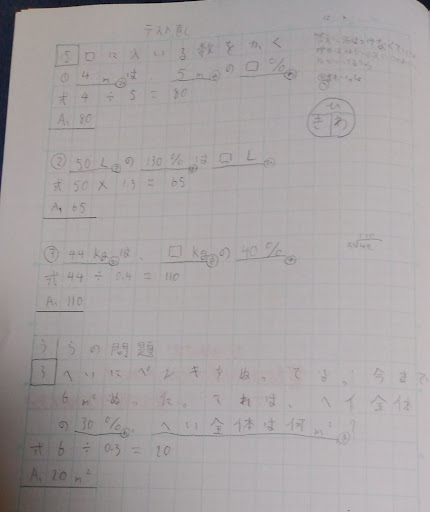 テスト直し
5 □に入いる数をかく
① 4 mは、 5 mの□%
式 4 ÷ 5 = 80
A. 80
② 50 Lの 130%は □ L
式 50 × 1.3 = 65
A. 65
③ 44 kgは、 □ kgの 40%
式 44 ÷ 0.4 = 110
A. 110
うらの問題
3 へいにペンキをぬってる。今まで
6 m²ぬった。これは、へい全体
の 30%。へい全体は何m²?
式 6 ÷ 0.3 = 20
A. 20 m²